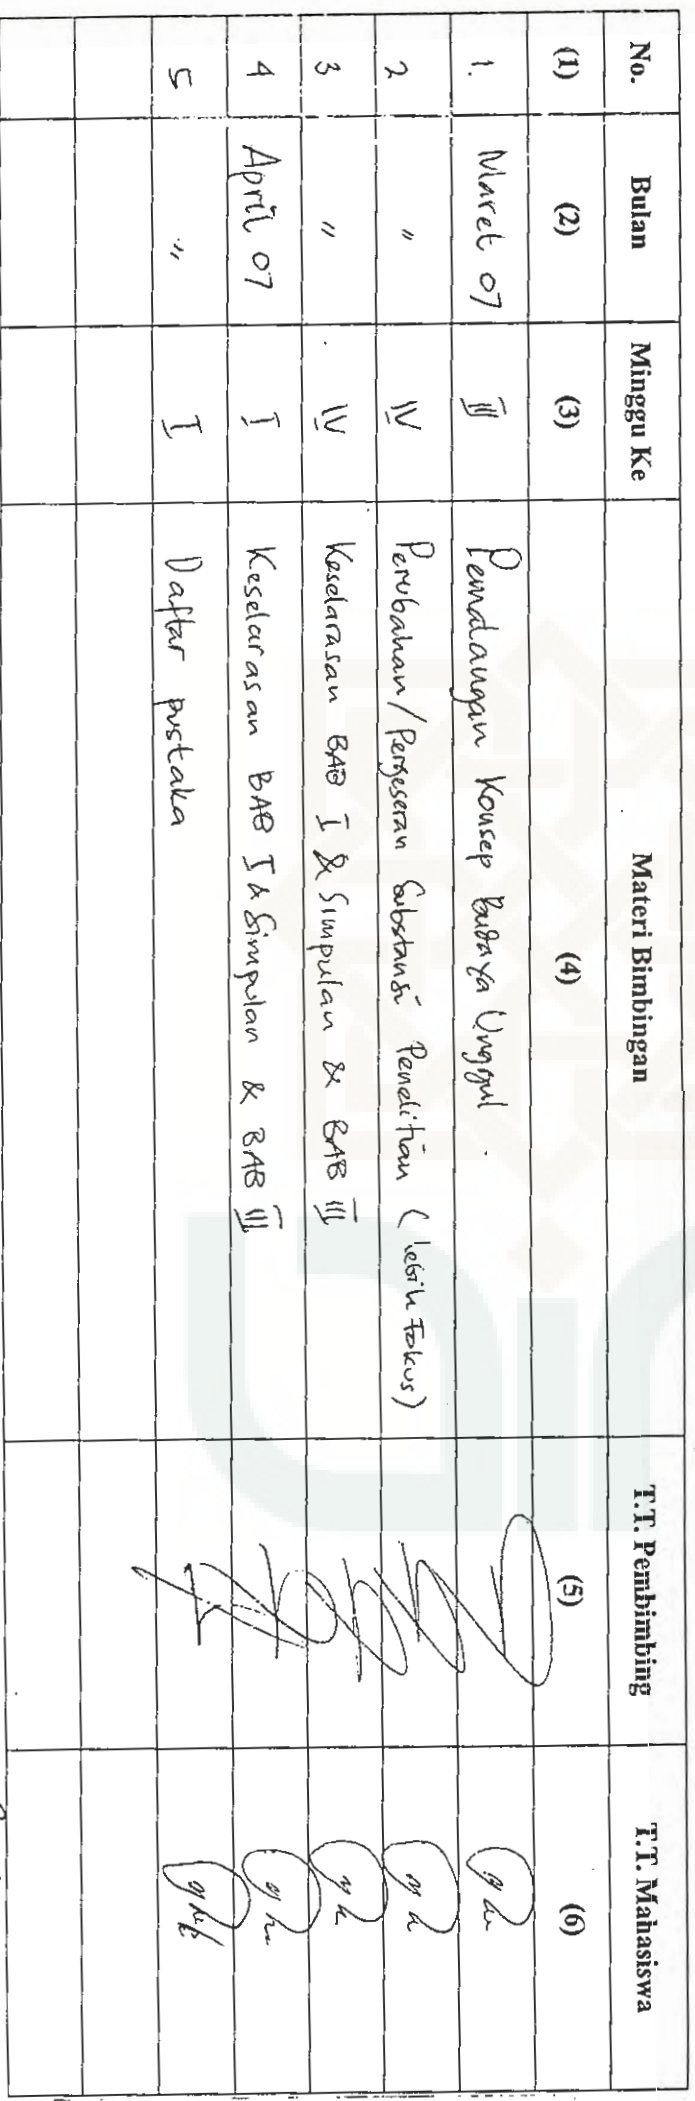 No. Bulan Minggu Ke Materi Bimbingan T.T. Pembimbing T.T. Mahasiswa
(1) (2) (3) (4) (5) (6)
1. Maret 07 III Pemdangan Konsep Budaya Unggul
2 " IV Perubahan/Pergeseran Substansi Penelitian (lebih Fokus)
3 " IV Keselarasan BAB I & Simpulan & BAB III
4 April 07 I Keselarasan BAB I & Simpulan & BAB III
5 " I Daftar pustaka